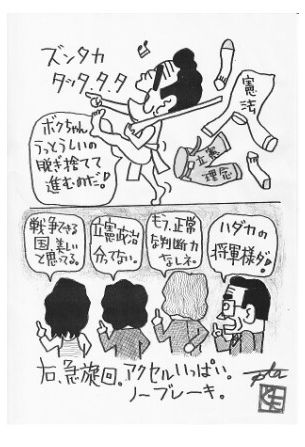 ズンタカ
ダッタ.タ.タ
憲
法
ボクちゃん
うっとうしいの
脱ぎ捨てて
進むのだ!
立憲
理念
戦争できる
国、美しい
と思ってる。
立憲政治
分ってない。
もう、正常
な判断力
なしネ。
ハダカの
将軍様ダ!
右、急旋回。アクセルいっぱい。
ノーブレーキ。